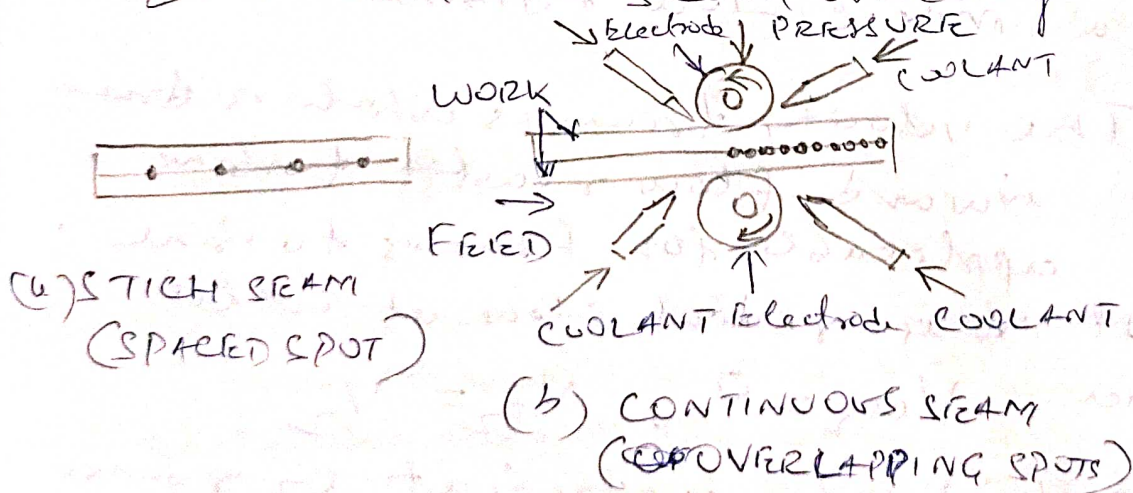 Electrode PRESSURE
COOLANT
WORK
FEED
(a) STICH SEAM
(SPACED SPOT)
COOLANT Electrode COOLANT
(b) CONTINUOUS SEAM
(OVERLAPPING SPOTS)